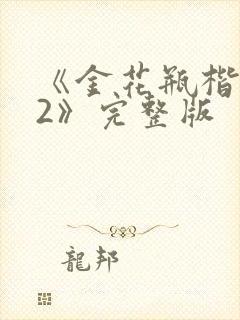 《金花瓶楷
2》完整版
龍邦